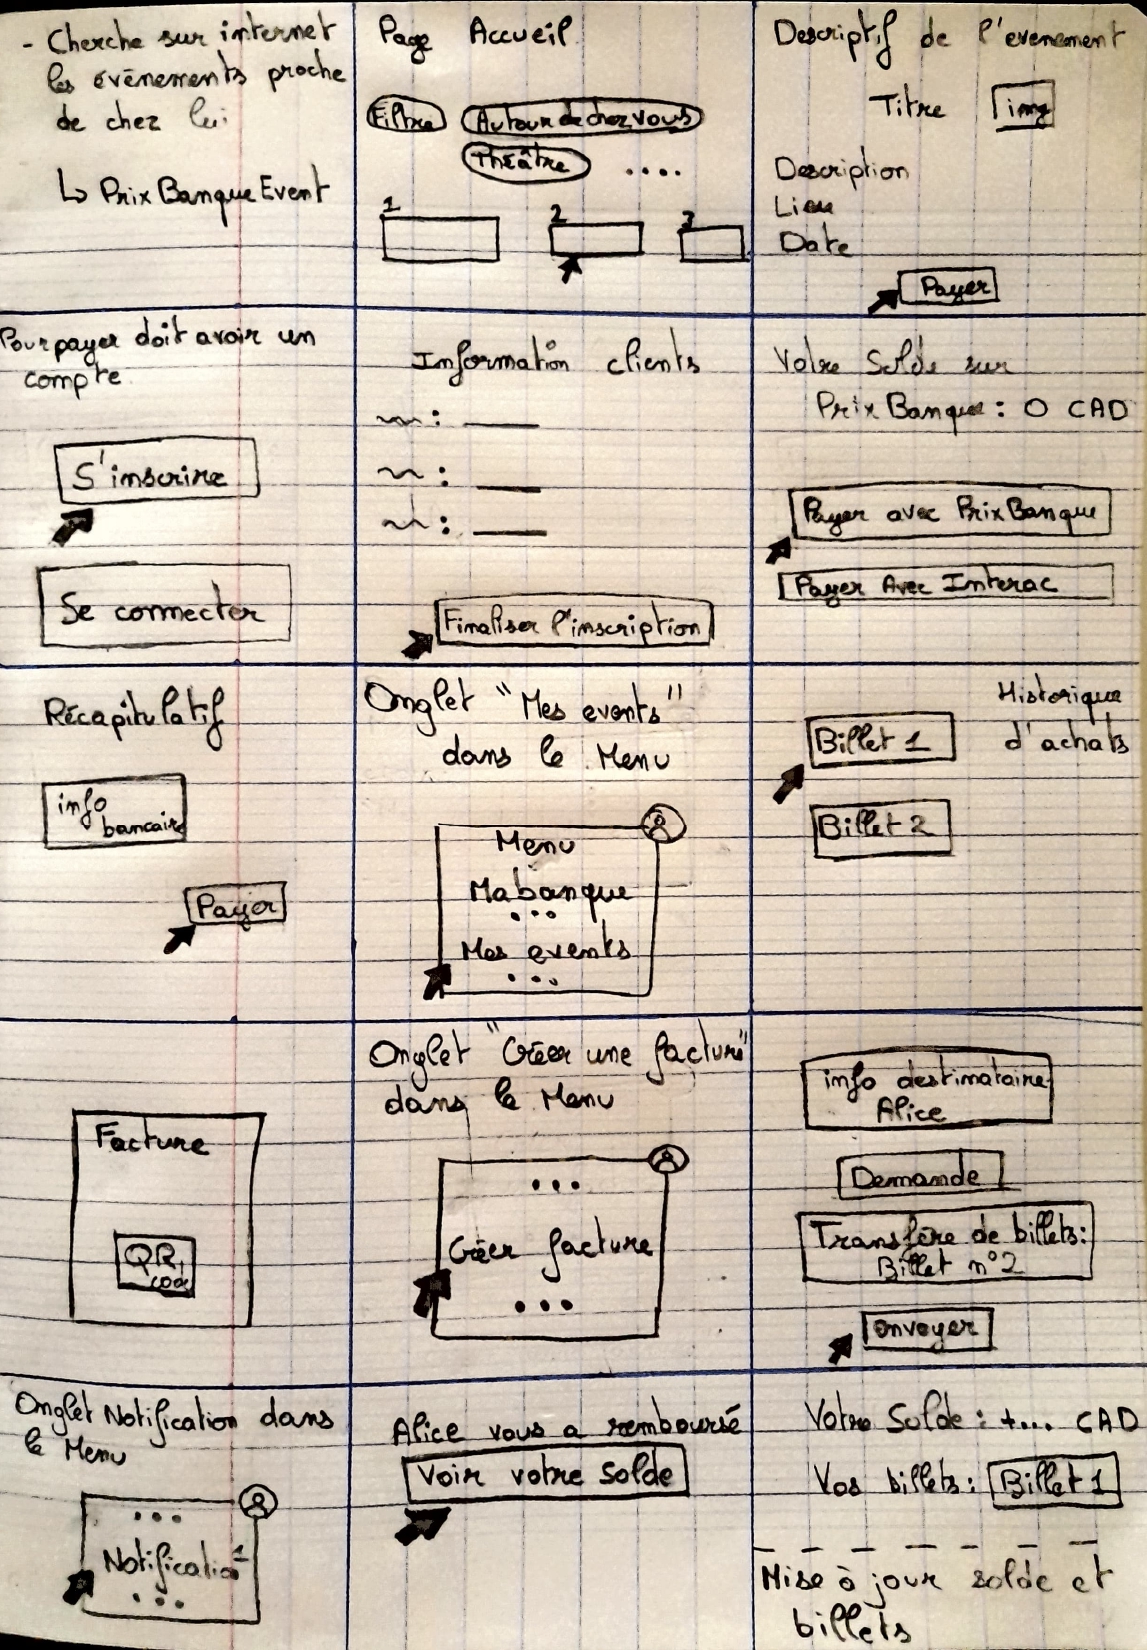 - Cherche sur internet
les évènements proche
de chez lui
↳ Prix Banque Event
Page Accueil
Filtre
Autour de chez vous
Théâtre
....
1
2
3
Descriptif de l'evenement
Titre
img
Description
Lieu
Date
Payer
Pour payer doit avoir un
compte
S'inscrire
Se connecter
Information clients
Finaliser l'inscription
Votre Solde sur
Prix Banque : 0 CAD
Payer avec Prix Banque
Payer Avec Interac
Récapitulatif
info
bancaire
Payer
Onglet "Mes events"
dans le Menu
Menu
Ma banque
...
Mes events
...
Historique
d'achats
Billet 1
Billet 2
Facture
QR
code
Onglet "Créer une facture"
dans le Menu
...
Créer facture
...
info destinataire
Alice
Demande
Transfère de billets:
Billet n°2
envoyer
Onglet Notification dans
le Menu
...
Notification 1
...
Alice vous a remboursé
Voir votre solde
Votre Solde : +... CAD
Vos billets : Billet 1
Mise à jour solde et
billets